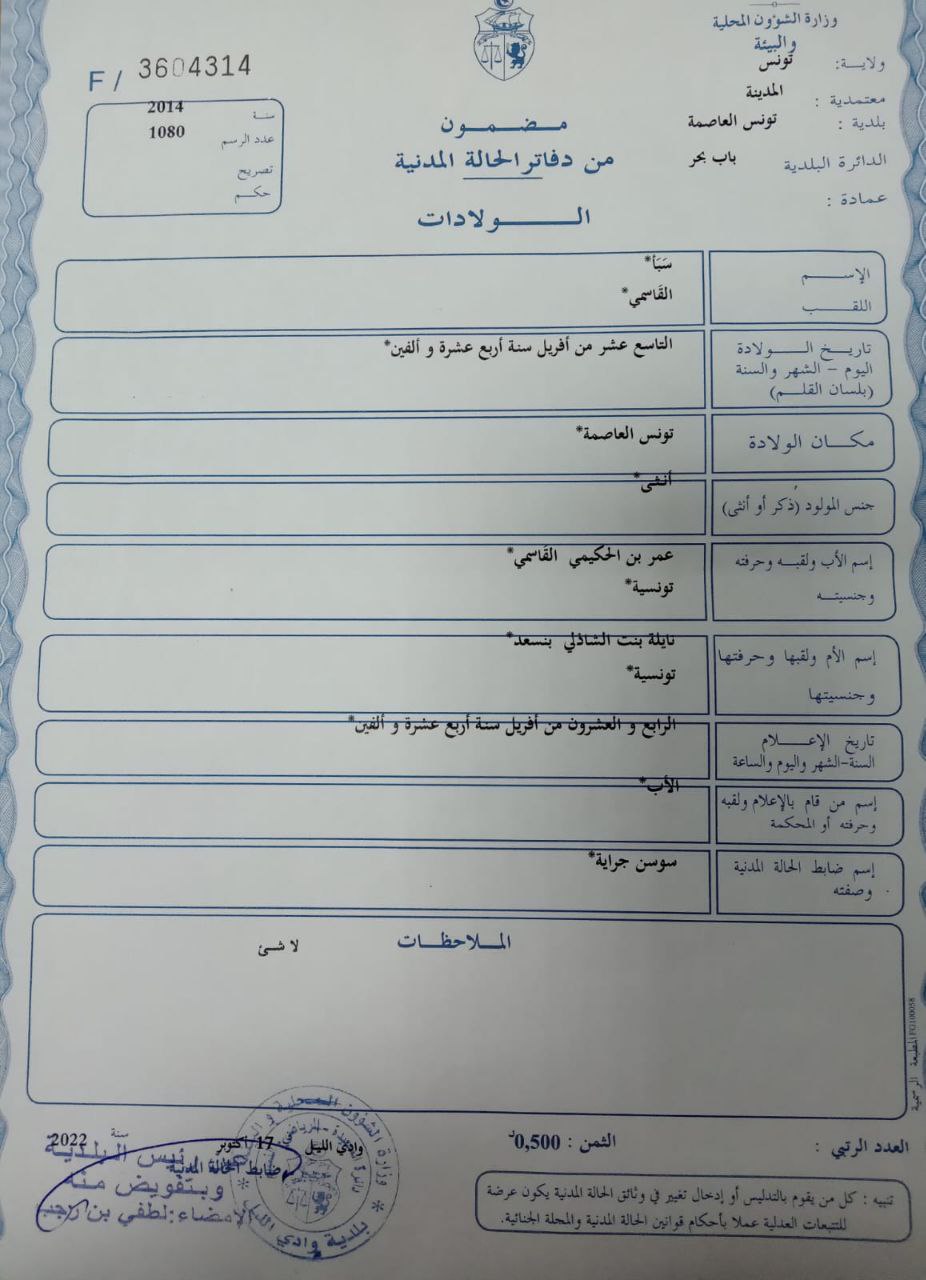 وزارة الشؤون المحلية
والبيئة
ولاية: تونس
معتمدية : المدينة
بلدية : تونس العاصمة
الدائرة البلدية باب بحر
عمادة :
F / 3604314
سنة 2014
عدد الرسم 1080
تصريح
حكم
مضمون
من دفاتر الحالة المدنية
الولادات
الإسم سَبَأ*
اللقب القَاسمي*
تاريخ الولادة التاسع عشر من أفريل سنة أربع عشرة و ألفين*
اليوم - الشهر والسنة
(بلسان القلم)
مكان الولادة تونس العاصمة*
جنس المولود (ذكر أو أنثى) أنثى*
إسم الأب ولقبه وحرفته عمر بن الحكيمي القَاسمي*
وجنسيته تونسية*
إسم الأم ولقبها وحرفتها نايلة بنت الشاذلي بنسعد*
وجنسيتها تونسية*
تاريخ الإعلام الرابع و العشرون من أفريل سنة أربع عشرة و ألفين*
السنة-الشهر واليوم والساعة
إسم من قام بالإعلام ولقبه الأب*
وحرفته أو المحكمة
إسم ضابط الحالة المدنية سوسن جراية*
وصفته
الملاحظات
لا شئ
المطبعة الرسمية FG100058
العدد الرتبي :
الثمن : 0,500د
وادي الليل 17/أكتوبر سنة 2022
ضابط الحالة المدنية
رئيس البلدية
وبتفويض منه
الإمضاء: لطفي بن رجب
بلدية وادي الليل
تنبيه : كل من يقوم بالتدليس أو إدخال تغيير في وثائق الحالة المدنية يكون عرضة
للتتبعات العدلية عملا بأحكام قوانين الحالة المدنية والمجلة الجنائية.